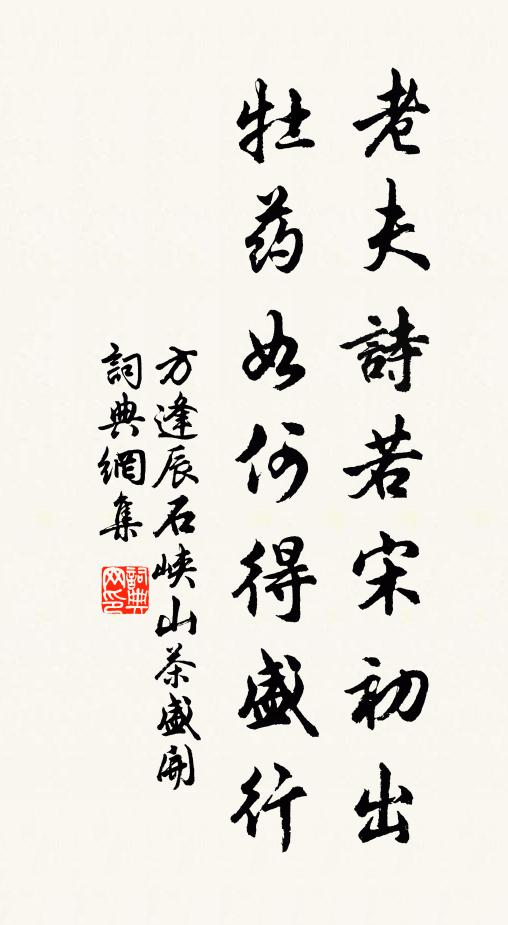 老夫詩若宋初出
牡药如何得盛行
方逢辰石峡山茶盛開
詞典網集
詞典網印